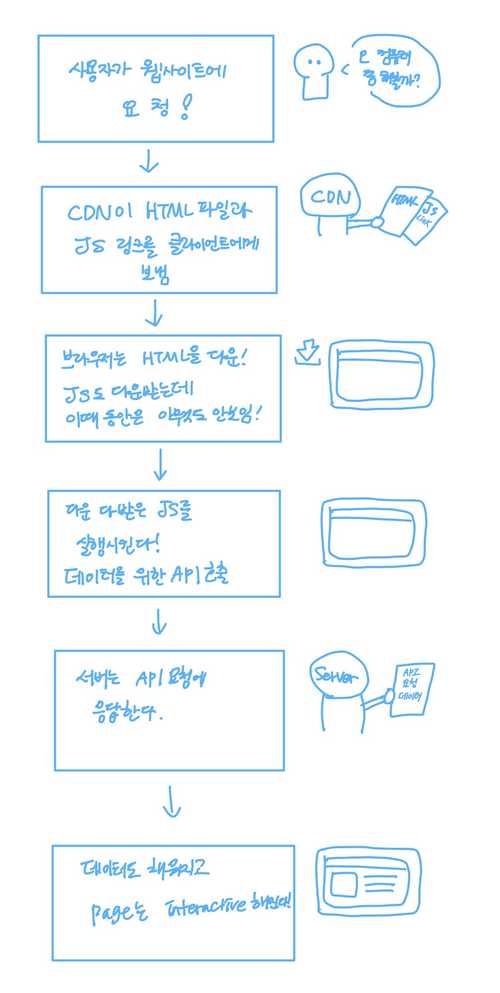 사용자가 웹사이트에
요청!
오 컴퓨터
좀 해볼까?
CDN이 HTML 파일과
JS 링크를 클라이언트에게
보냄
CDN
HTML
JS
Link
브라우저는 HTML을 다운!
JS도 다운받는데
이때 동안은 아무것도 안보임!
다운 다받은 JS를
실행시킨다!
데이터를 위한 API 호출
서버는 API 요청에
응답한다.
Server
API
요청
데이터
데이터도 채워지고
page는 Interactive 해진다!